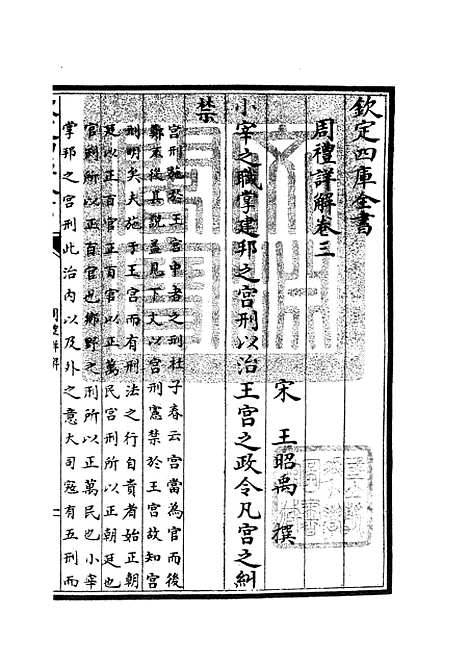 欽定四庫全書
周禮詳解卷三
宋 王昭禹 撰
小宰之職掌建邦之宮刑以治王宮之政令凡宮之糾
禁
宮刑施於王宮中者之刑杜子春云宮當為官而後
鄭不從其說蓋見下文以宮刑憲禁於王宮故知宮
刑明矣夫施于王宮而有刑法之行自貴者始正朝
廷以正百官正百官以正萬民宮刑所以正朝廷也
官刑所以正百官也鄉野之刑所以正萬民也小宰
掌邦之宮刑此治内以及外之意大司寇有五刑而